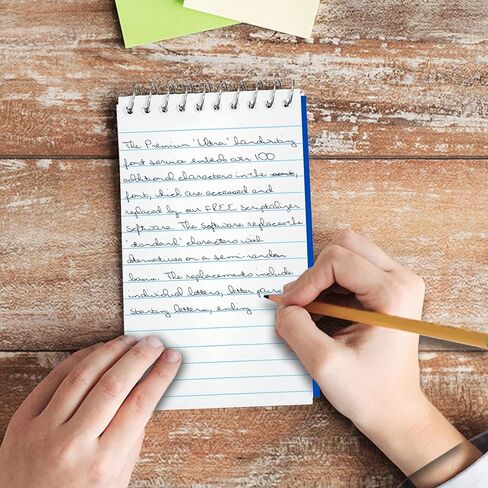 The Premium 'Ultra' handwriting
font service embeds over 100
additional characters in the font,
font, which are accessed and
replaced by our FREE Scriptalizer
Software. The Software replaces the
'standard' characters with
alternatives on a semi-random
basis. The replacements include
individual letters, letter pairs
starting letters, ending